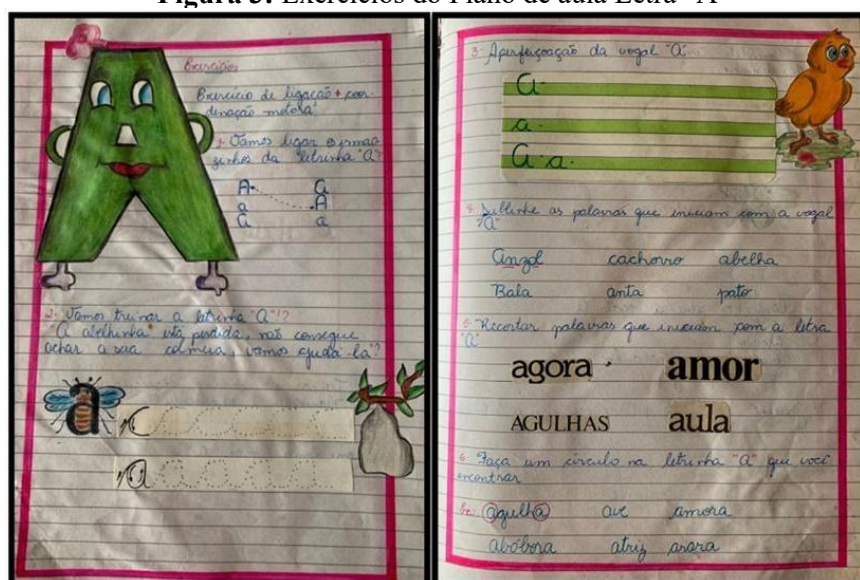 Figura 3: Exercícios do Plano de aula Letra "A"
Exercícios
Exercício de ligação + coor-
denação motora
1- Vamos ligar os irmão
zinhos da letrinha "A"?
A a
a A
a a
2- Vamos treinar a letrinha "a"!?
"A abelhinha" está perdida, não consegue
achar a sua colmeia, vamos ajudá-la?
a
a a a a a a
a a a a a
3- Aperfeiçoação da vogal "a".
a
a
a a
4- Sublinhe as palavras que iniciam com a vogal
"a"
anzol cachorro abelha
Bala anta pato
5- Recortar palavras que iniciam com a letra
"a"
agora amor
AGULHAS aula
6- Faça um círculo na letrinha "a" que você
encontrar
Ex: agulha ave amora
abóbora atriz arara